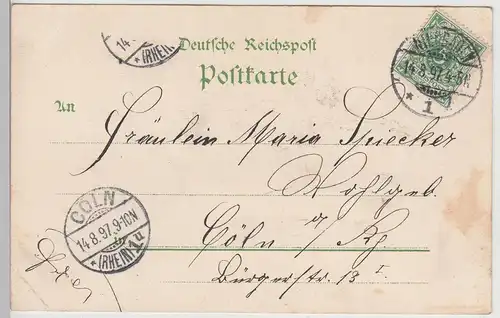 14
(RHEIN)
Deutsche Reichspost
Postkarte
14.8.97.4-5N
* 1
An
Fräulein Maria Spiecker
Wohlgeb.
Cöln a/Rh
Bürgerstr. 13 I
CÖLN
14.8.97.9-10N
* (RHEIN) 1d